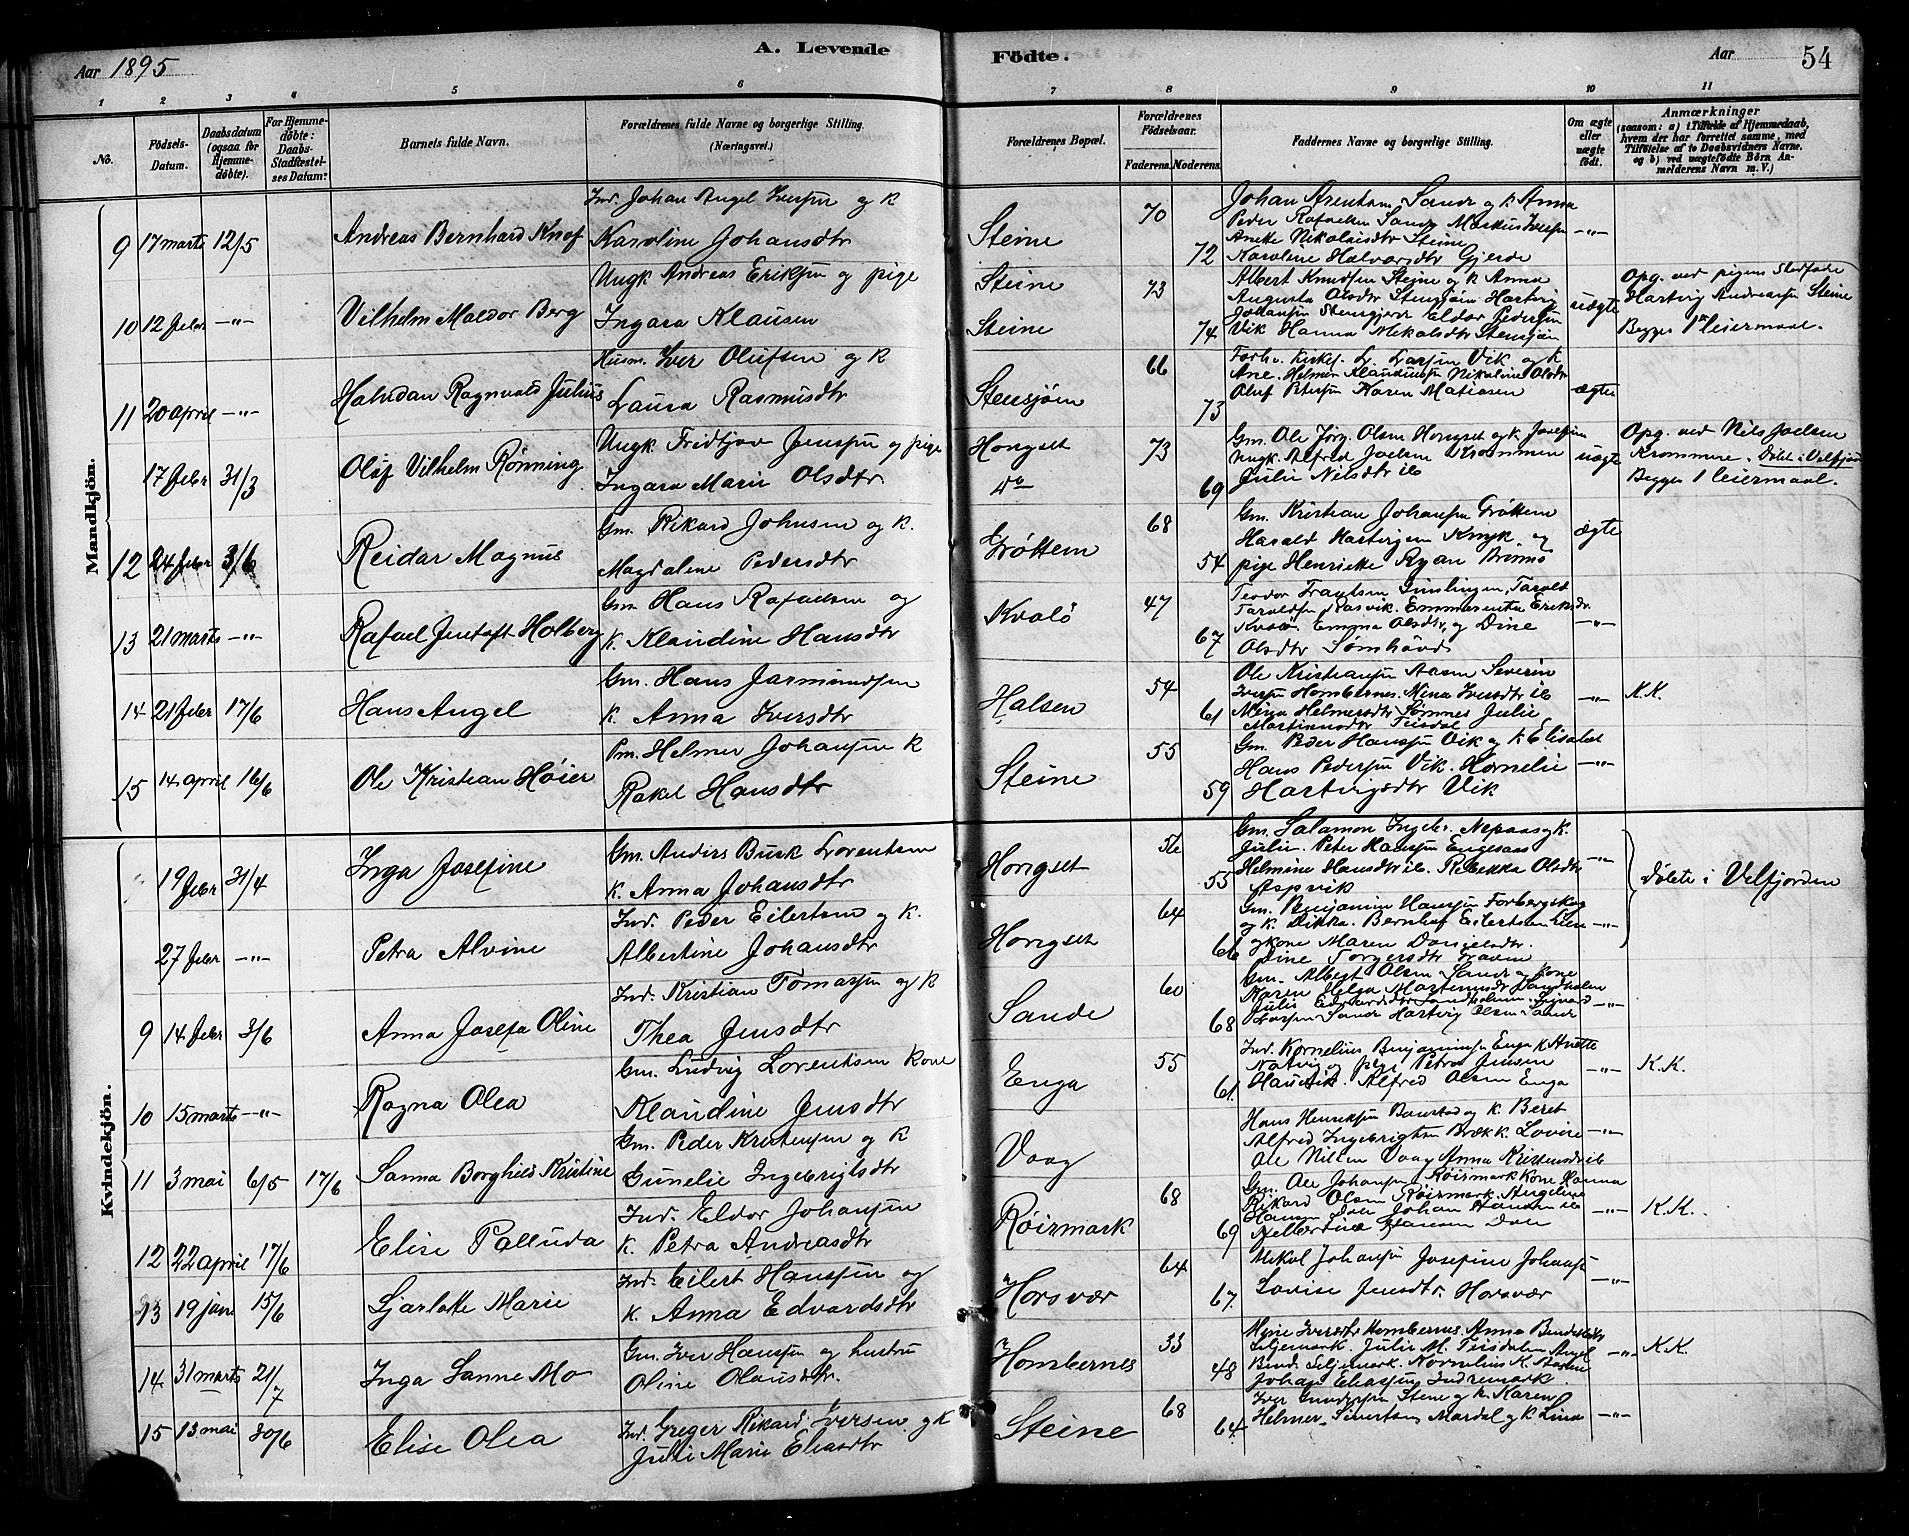 A. Levende
Födte.
Aar 1895
Aar
54
1 2 3 4 5 6 7 8 9 10 11
No.
Födsels-Datum.
Daabsdatum (ogsaa for Hjemmedøbte).
For Hjemmedöbte: Daabs-Stadfæstelses Datum?
Barnets fulde Navn.
Forældrenes fulde Navne og borgerlige Stilling. (Næringsvei.)
Forældrenes Bopæl.
Forældrenes Födselsaar.
Faderens. Moderens.
Faddernes Navne og borgerlige Stilling.
Om ægte eller uægte födt.
Anmærkninger
(saasom: a) i Tilfælde af Hjemmedaab, hvem der har forrettet samme, med Tilföielse af to Daabsvidners Navne, og b) ved uægtefödte Börn Anmelderens Navn m. V.)
Mandkjön.
9 17 marts 12/5 Andreas Bernhard Knof
Ind. Johan Angel Iversen og k
Karoline Johansdtr
Steine 70 72
Johan Arentsen Sande og k Anna
Peder Rafaelsen Sande Markus Iversen
Anette Nikolaisdtr Steine
Karoline Halvorsdtr Gjerde
-"-
10 12 febr -"- Vilhelm Maldor Berg
Ungk Andreas Eriksen og pige
Ingara Klausen
Steine 73
Steine 74
Albert Knudsen Steine og k Anna
Augusta Olsdtr Stensjøen Hartvig
Johansen Stensgjerd Eldor Pedersen
Vik Hanna Mekalsdtr Stensjøn
uægte
Opg. ved pigens Stedfader
Hartvig Andreassen Steine
Begges 1ste leiermaal.
11 20 april -"- Halvdan Ragnvald Julius
Husm. Iver Olufsen og k
Laura Rasmusdtr
Stensjøen 66 73
Forh. Kirkes. L. Larsen Vik og k
Ane. Helmer Klaudiussen Nikoline Olsdtr
Oluf Petersen Karen Matiasen
ægte
17 febr 31/3 Olaf Vilhelm Rønning
Ungk Fridtjov Jenssen og pige
Ingara Marie Olsdtr
Hongset 73
Do 69
Gm. Ole Jørg. Olsen Hongset og k. Josefine
Ungk. Alfred Joelsen Krommen
Julie Nilsdtr ib
uægte
Opg. ved Nils Joelsen
Krommen. Døbt i Velfjord
Begges 1 leiermaal.
12 24 febr 3/6 Reidar Magnus
Gm. Rikard Johnsen og k.
Magdalene Pedersdtr
Grøttem 68 54
Gm. Kristian Johansen Grøttem
Harald Hartvigsen Kmyk. og
pige Henriette Ryan Brønnø
ægte
13 21 marts -"- Rafael Jentoft Holberg
Gm Hans Rafaelsen og
k. Klaudine Hansdtr
Kvalø 47 67
Teodor Frantsen Tarald
Taraldsen Rasvik. Emmerentse Eriksdtr
Kvalø. Emma Olsdtr og Dine
Olsdtr Sømhovd
-"-
14 21 febr 17/6 Hans Angel
Gm. Hans Jasmundsen
k. Anna Iversdtr
Halsen 54 61
Ole Kristiansen Aasen Severin
Iversen Hombernes. Mina Iversdtr ib
Mina Helmersdtr Sømnes Julie
Martinusdtr Teisdal
-"- K.K.
15 14 april 16/6 Ole Kristian Høier
Pm. Helmer Johansen k
Rakel Hansdtr
Steine 55 59
Gm. Peder Hanssen Vik og k Elisabet
Hans Pedersen Vik. Hornelie
Hartvigsdtr Vik
-"-
Kvindekjön.
19 febr 31/4 Inga Josefine
Gm. Anders Busk Lorentsen
k. Anna Johansdtr
Hongset 56 55
Gm. Salamon Ingebr. Nepaas og k.
Julie. Peter Hanssen Engesaas
Helmine Hansdtr ib. Rebekka Olsdtr
Aspvik
-"-
døbte i Velfjorden
27 febr -"- Petra Alvine
Ind. Peder Eilertsen og k.
Albertine Johansdtr
Hongset 64 66
Gm. Benjamin Hanssen Forbergskog
og k. Dikka. Bernhof Eilertsen Lien
og kone Maren Danielsdtr.
Dine Torgersdtr
-"-
9 14 febr 3/6 Anna Josefa Oline
Ind. Kristian Tomassen og k
Thea Jensdtr
Sande 60 68
Gm. Albert Olsen Sande og kone
Karen Helga Martinusdtr Sandholm
Julie Edvardsdtr Sandholm. Sigvard
Larsen Sande Hartvig Olsen Sande
-"-
10 15 marts -"- Ragna Olea
Gm. Ludvig Lorentsen kone
Klaudine Jensdtr
Enga 55 61
Ind. Kornelius Benjaminsen Enga k Anette
Natvig og pige Petra Jensen
Hausvik. Alfred Olsen Enga
-"- K.K.
11 3 mai 6/5 17/6 Sanna Borghild Kristine
Gm. Peder Kristensen og k
Gunelie Ingebrigtsdtr
Vaag
Hans Henriksen Baustad og k. Beret
Alfred Ingebrigtsen Bræk k. Lovise
Ole Nilsen Vaag Anna Kristensdtr ib
-"-
12 22 april 17/6 Elise Palluda
Ind. Eldor Johansen
k. Petra Andreasdtr
Røirmark 68 69
Gm. Ole Johansen Røirmark kone Hanna
Rikard Olsen Røirmark. Angeline
Hansen Dale Johan Hansen ib
Hansen Dale
-"- K.K.
13 19 jan 15/6 Sjarlotte Marie
Ind. Eilert Hanssen og
k. Anna Edvardsdtr
Horsvær 64 67
Mekal Johansen Josefine Johanss
Lovise Jensdtr. Horsvær
-"-
14 31 marts 21/7 Inga Sanne Mo
Gm. Iver Hanssen og hustru
Oline Olausdtr.
Hombernes 53 48
Mine Iversdtr Hombernes. Anna Bendeksdtr
Siljemark. Julie M. Teisdalen Angel
Bend. Siljemark. Nornelius K.
Johan Eliassen Indremark.
-"- K.K.
15 13 mai 30/6 Elise Olea
Ind. Greger Rikard Iversen og k
Julie Marie Eliasdtr
Steine 68 64
Iver Gundersen Stene og k. Karen
Helmer Sivertsen Mardal og k Lina
-"-